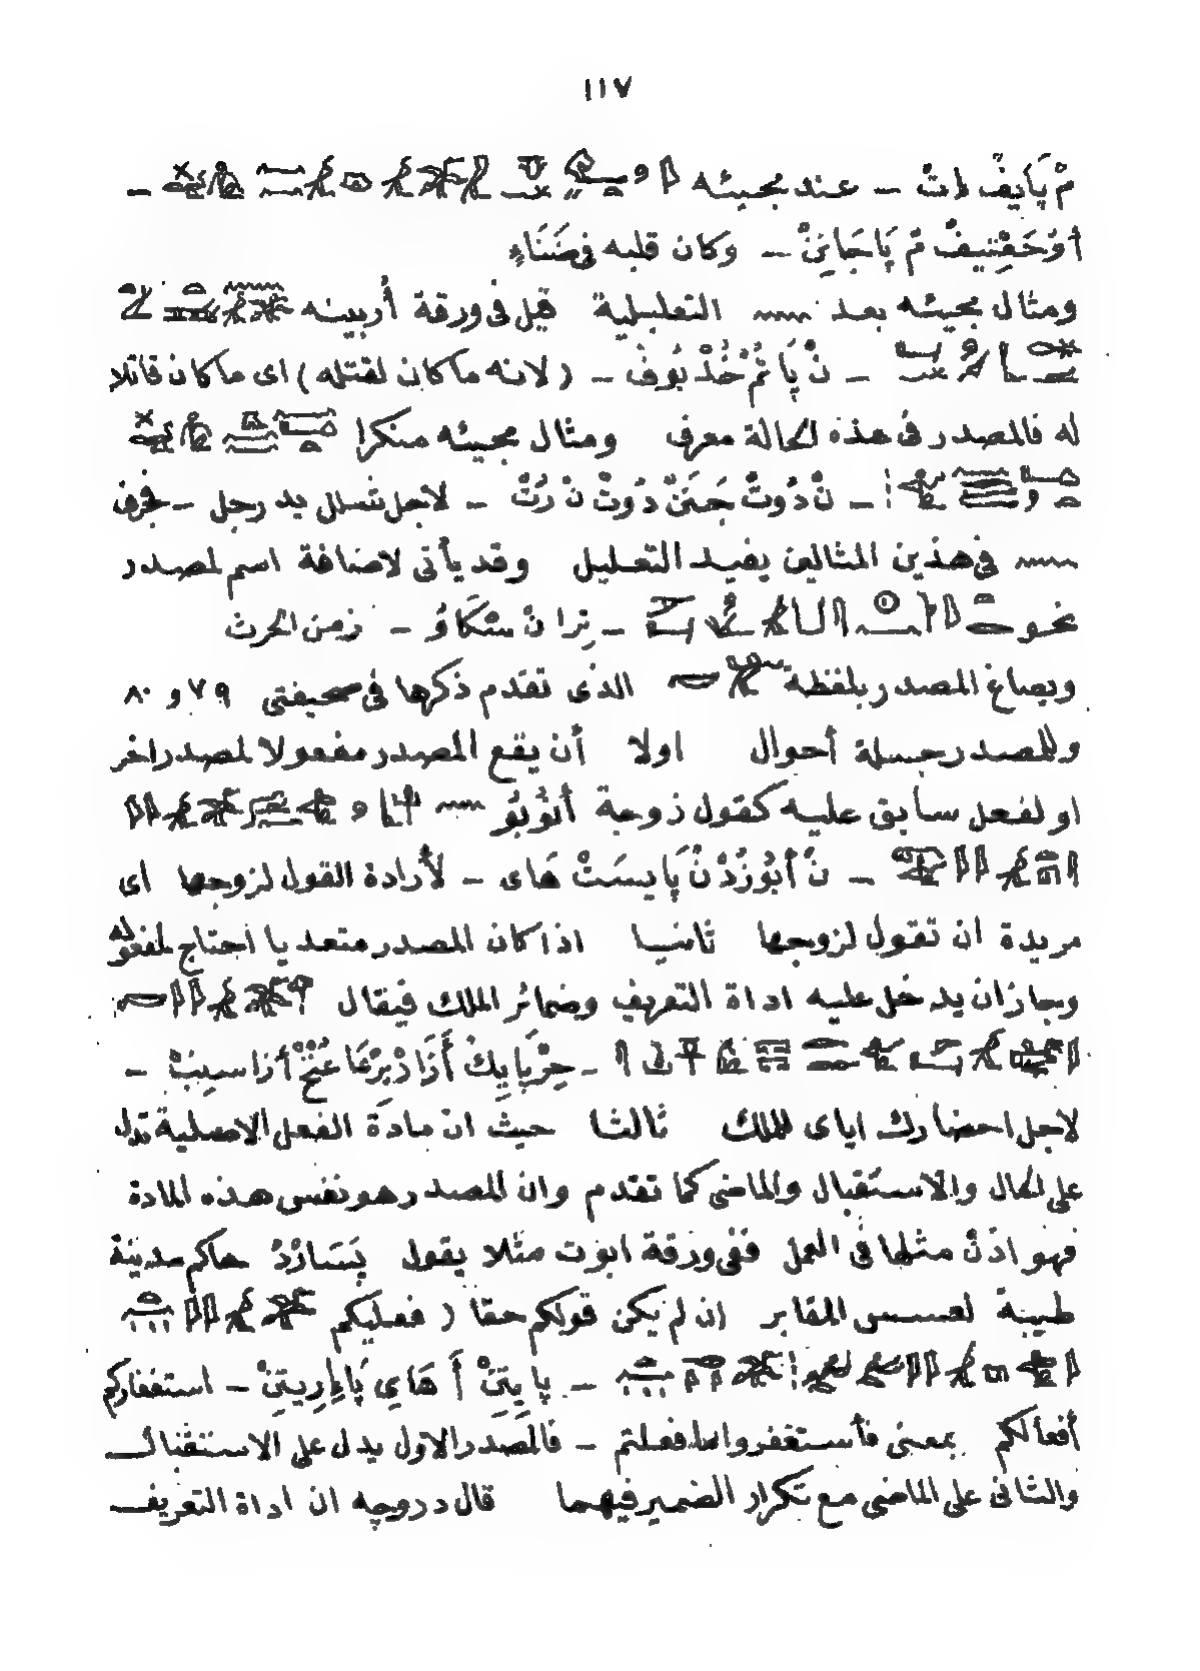 ١١٧
مْ پَايفْ إتْ - عند مجيئه -
أُوُحَعْتِيفْ مْ پَاجَائِنْ - وكان قلبه فى ضَنَاءٍ
ومثال مجيئه بعد التعليلية قيل فى ورقة أربينه
- نْ پَا تْمْ خُدْبُوفْ - (لانه ما كان لقتله) اى ما كان قاتلا
له فالمصدر فى هذه الحالة معرف ومثال مجيئه منكرا
- نْ دُوتْ جَننْ دُوتْ نْ رُتْ - لاجل شلل يد رجل - فحرف
فى هذين المثالين يفيد التعليل وقد يأتى لاضافة اسم لمصدر
نحو - تِرا نْ سْكَاوُ - زمن الحرث
ويصاغ المصدر بلفظة الذى تقدم ذكرها فى صحيفتى ٧٩ و ٨٠
وللمصدر جملة أحوال اولا أن يقع المصدر مفعولا لمصدر اخر
او لفعل سابق عليه كقول زوجة أنُوبُو
- نْ أبُو زُدْ نْ پَايسَتْ هَاى - لأرادة القول لزوجها اى
مريدة ان تقول لزوجها ثانيا اذا كان المصدر متعديا احتاج لمفعوله
وجاز ان يدخل عليه اداة التعريف وضمائر الملك فيقال
- حِرْپَايِكْ أزَا دْبِرْعَا عَنْخْ أزا سِنِبْ -
لاجل احضارك اياى للملك ثالثا حيث ان مادة الفعل الاصلية تدل
على الحال والاستقبال والماضى كما تقدم وان المصدر هو نفس هذه المادة
فهو اذنْ مثلها فى العمل ففى ورقة ابوت مثلا يقول حاكم مدينة
طيبة لعسس المقابر ان لم يكن قولكم حقا ( فعليكم
- پايتِنْ أهَاىِ پَاإِريتِنْ - استغفاركم
أفعالكم بمعنى فأستغفروا لما فعلتم - فالمصدر الاول يدل على الاستقبال
والثانى على الماضى مع تكرار الضمير فيهما قال دروجه ان اداة التعريف